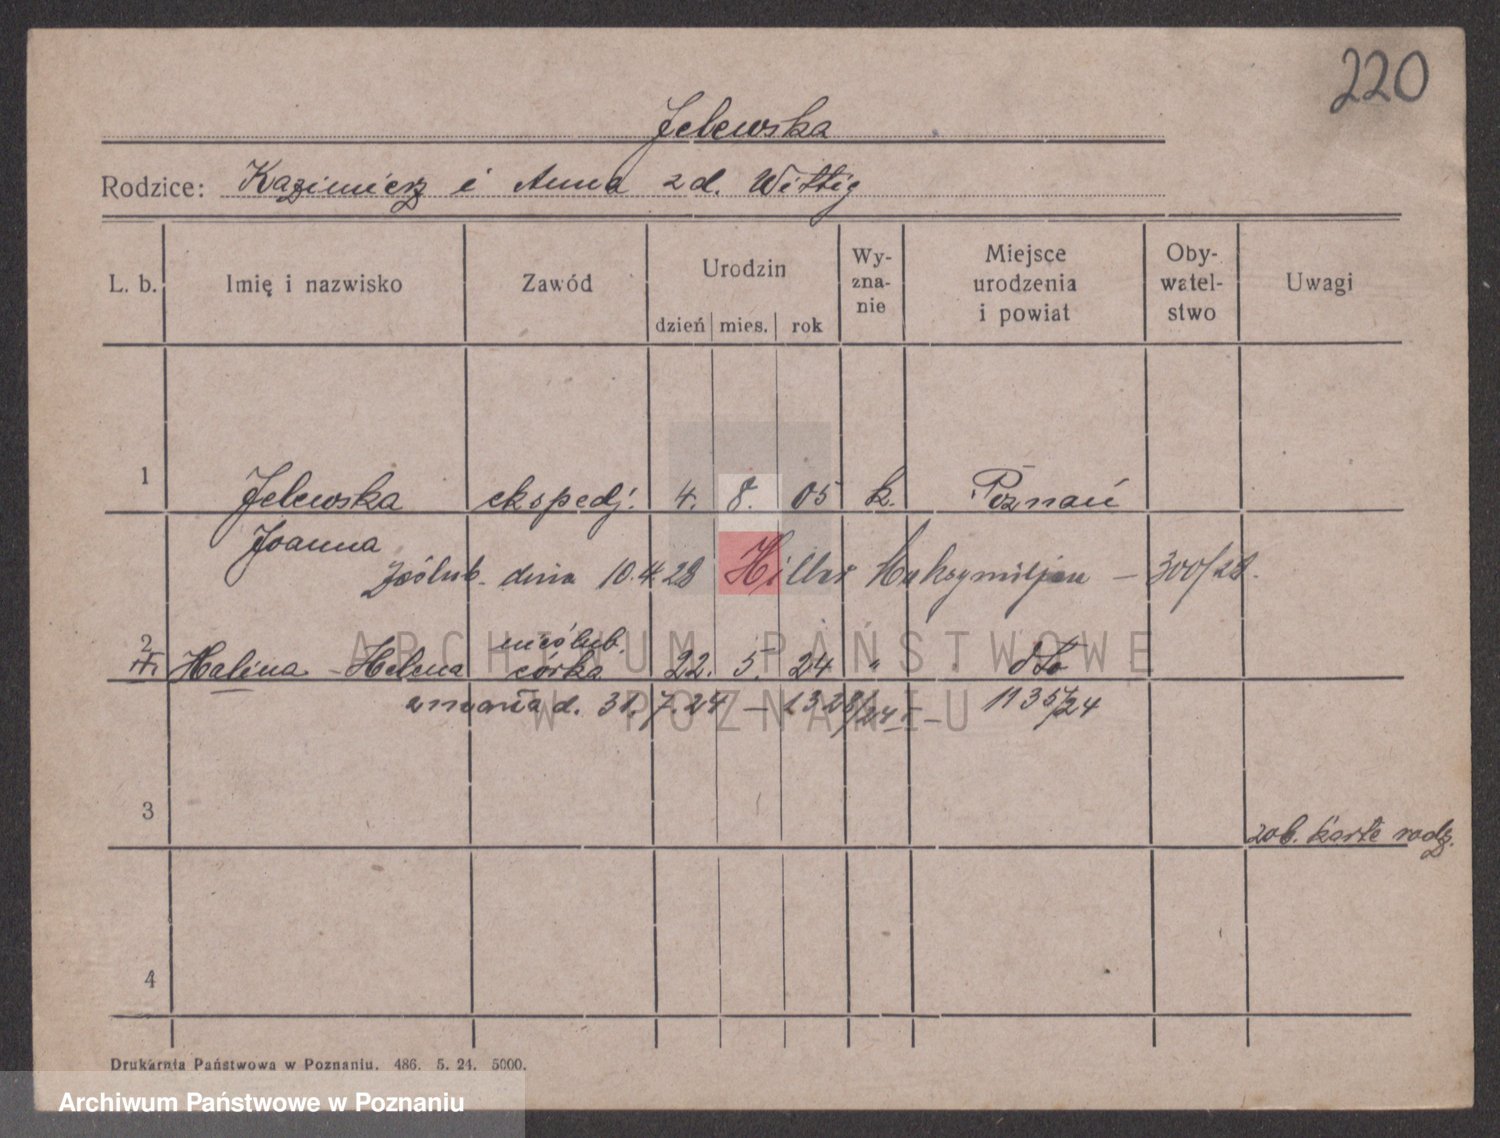 220
Jelewska
Rodzice: Kazimierz i Anna zd. Wittig
L. b. Imię i nazwisko Zawód Urodzin dzień mies. rok Wy-zna-nie Miejsce urodzenia i powiat Oby-watel-stwo Uwagi
1 Jelewska ekspedj. 4. 8. 05 k. Poznań
Joanna
zaślub. dnia 10.4.28 Hiller Maksymiljan — 300/28.
nieślub.
2 Halina - Helena córka 22. 5. 24 " dto
zmarła d. 31.7.24 — 1328/24 — 1135/24
3
zob. kartę rodz.
4
Drukarnia Państwowa w Poznaniu. 486. 5. 24. 5000.
ARCHIWUM PAŃSTWOWE
W POZNANIU
Archiwum Państwowe w Poznaniu